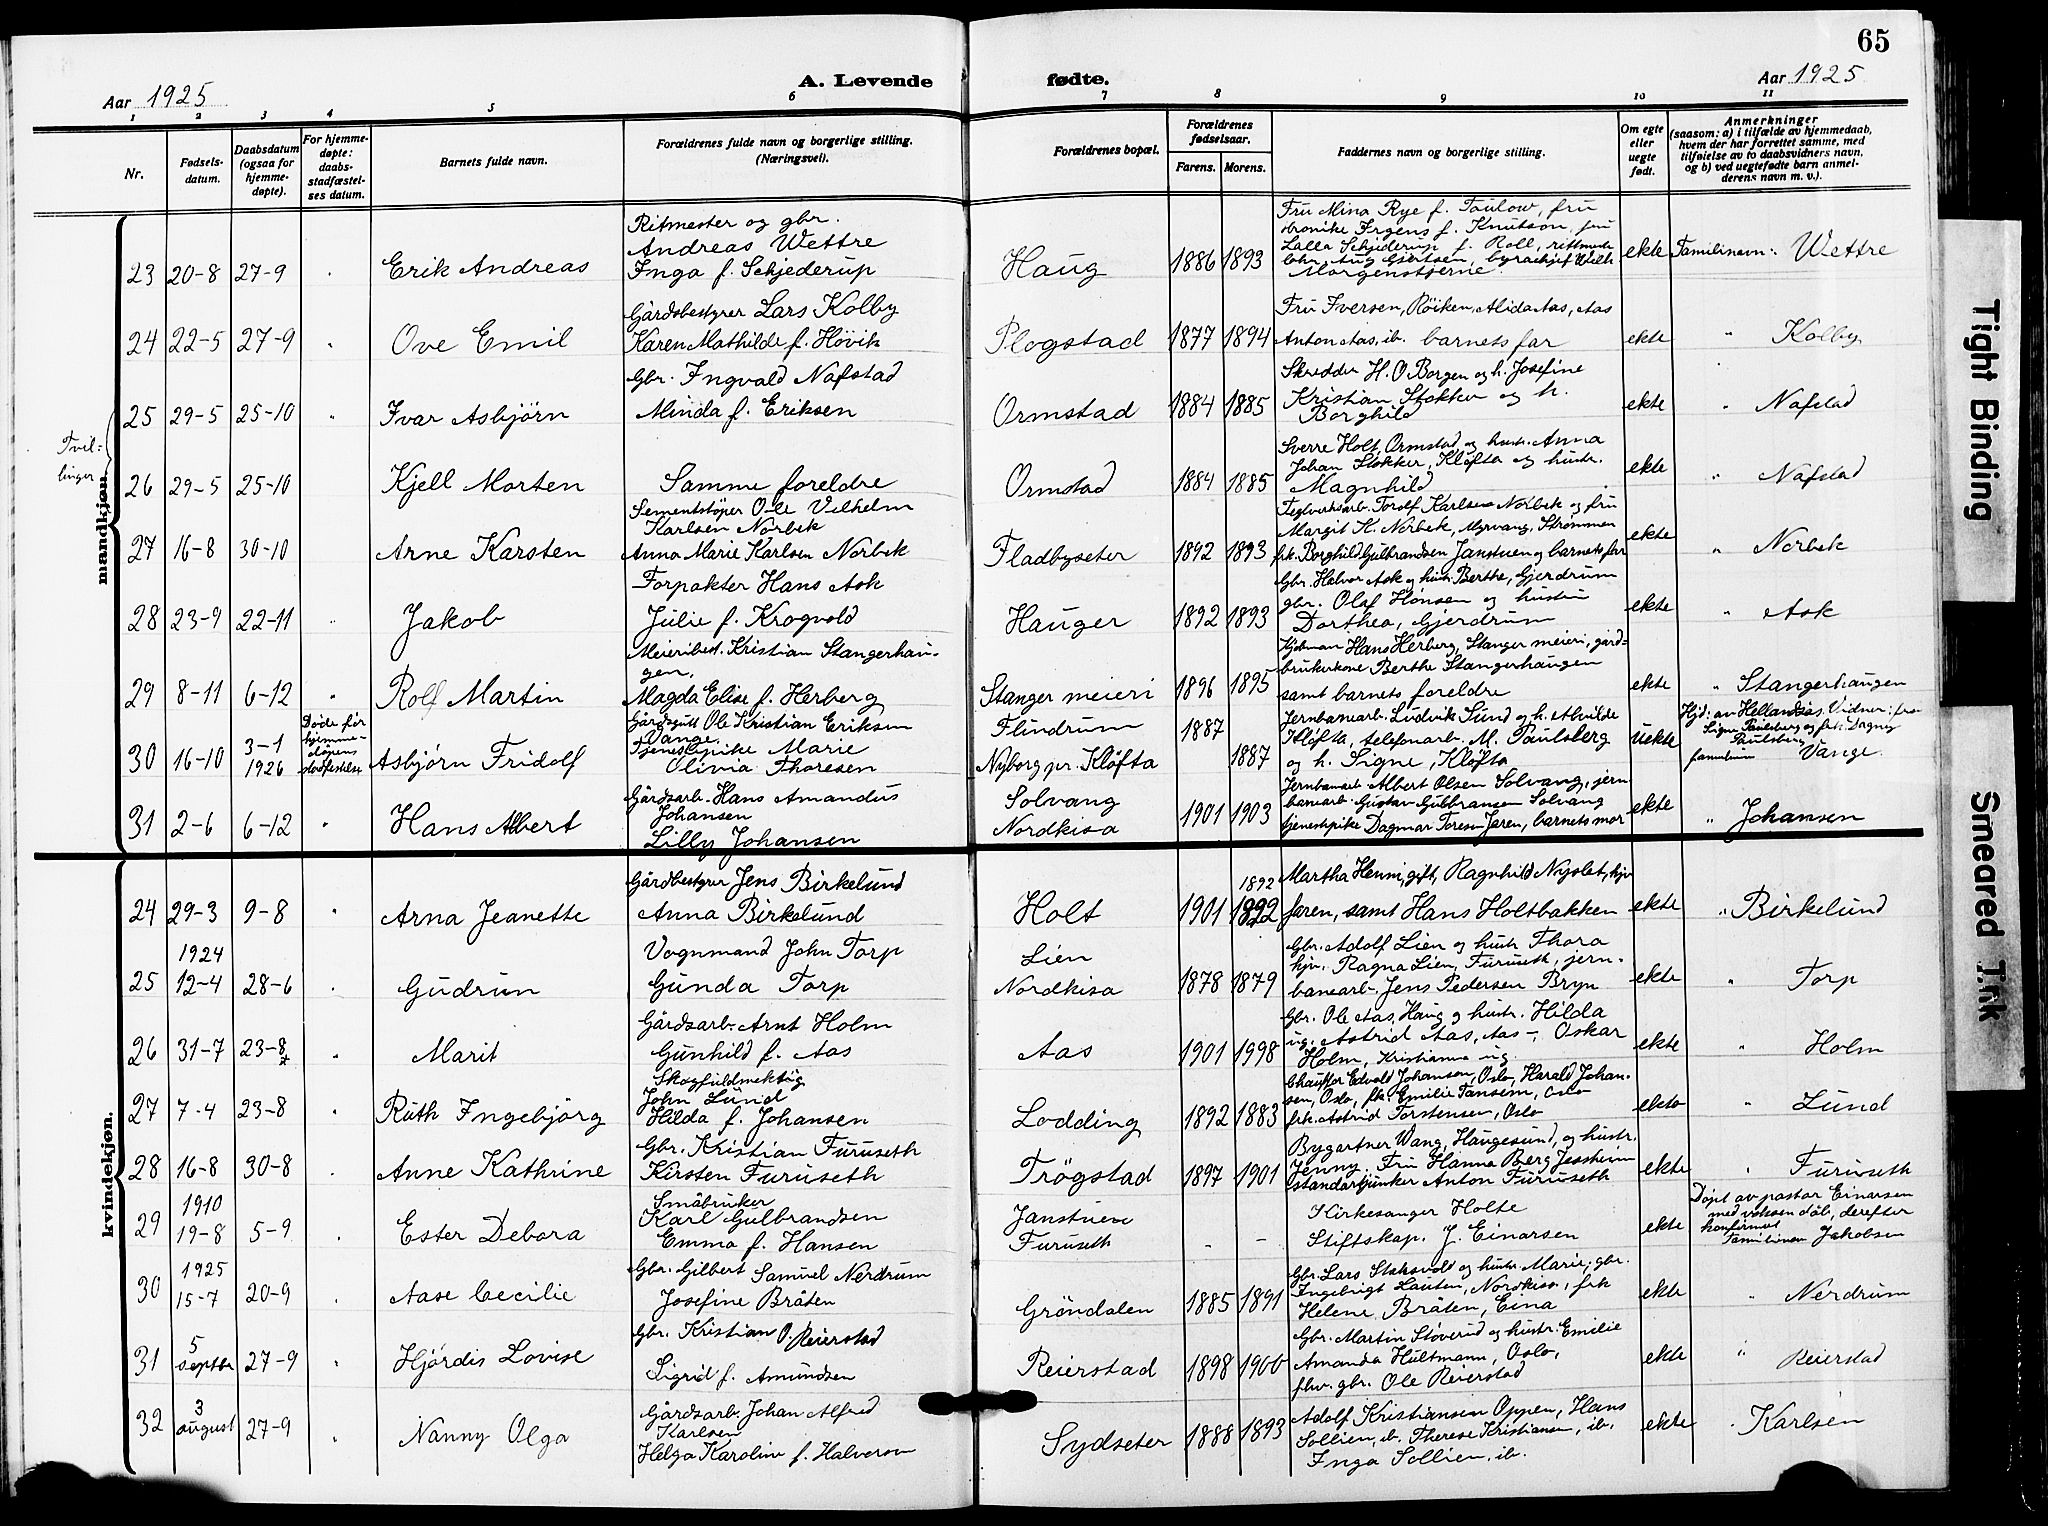 65
Aar 1925
A. Levende fødte.
Aar 1925
1 2 3 4 5 6 7 8 9 10 11
Nr.
Fødsels-
datum.
Daabsdatum
(ogsaa for
hjemme-
døpte).
For hjemme-
døpte:
daabs-
stadfæstel-
ses datum.
Barnets fulde navn.
Forældrenes fulde navn og borgerlige stilling.
(Næringsvei).
Forældrenes bopæl.
Forældrenes
fødselsaar.
Farens. Morens.
Faddernes navn og borgerlige stilling.
Om egte
eller
uegte
født.
Anmerkninger
(saasom: a) i tilfælde av hjemmedaab,
hvem der har forrettet samme, med
tilføielse av to daabsvidners navn.
og b) ved uegtefødte barn anmel-
derens navn m. v.).
mandkjøn.
Ritmester og gbr.
Andreas Wettre
23 20-8 27-9 Erik Andreas Inga f. Schjederup
Haug 1886 1893
Fru Mina Rye f. Taulow, fru
Irgens f. Knutson, fru
Lalla Schjederup f. Roll, rittmester
Morgenstjerne
ekte Familienavn: Wettre
Gårdsbestyrer Lars Kolby
24 22-5 27-9 Ove Emil Karen Mathilde f. Hövik
Plogstad 1877 1894
Fru Iversen, Röiken, Alida Aas, Aas
Anton Aas, ib. barnets far
ekte " Kolby
Gbr. Ingvald Nafstad
25 29-5 25-10 Ivar Asbjörn Minda f. Eriksen
Ormstad 1884 1885
Skredder H. O. Borgen og h. Josefine
Kristian Stokker og h.
Borghild
ekte " Nafstad
Tvil-
linger
26 29-5 25-10 Kjell Morten Samme foreldre
Ormstad 1884 1885
Sverre Holt, Ormstad og hustr. Anna
Johan Stokker, Klöfta og hustr.
Magnhild
ekte " Nafstad
Sementstöper Ole Vilhelm
Karlsen Norbek
27 16-8 30-10 Arne Karsten Anna Marie Karlsen Norbek
Fladbyseter 1892 1893
Teglverksarb. Torolf Karlsen Norbek og fru
Margit K. Norbek, Myrvang, Strömmen
frk. Borghild Gulbrandsen Janstuen og barnets far
ekte " Norbek
Forpakter Hans Ask
28 23-9 22-11 Jakob Julie f. Krogvold
Hauger 1892 1893
Gbr. Halvor Ask og hustr. Berthe, Gjerdrum
gbr. Olaf Hönsen og hustru
Dorthea, Gjerdrum
ekte " Ask
Meieribest. Kristian Stangerhau-
gen,
29 8-11 6-12 Rolf Martin Magda Elise f. Herberg
Stanger meieri 1896 1895
Hans Herberg, Stanger meieri, gård-
brukerkone Berthe Stangerhaugen
samt barnets foreldre
ekte " Stangerhaugen
Döde för
hjemme-
döpens
stadfestelse
Gårdsgutt Ole Kristian Eriksen
Vange.
30 16-10 3-1 1926 Asbjörn Fridolf Tjenestepike Marie
Olivia Thoresen
Flindrum 1887
Nyborg pr. Klöfta 1887
Jernbanearb. Ludvik Sund og h. Alvilde
Klöfta, telefonarb. M. Paulsberg
og h. Signe, Klöfta
uekte
Hjd: av Hellandsås. Vidner: fru
Signe Paulsberg og frk. Dagny
Paulsberg
familienavn Vange.
31 2-6 6-12 Hans Albert
Gårdsarb. Hans Amandus
Johansen
Lilly Johansen
Solvang
Nordkisa 1901 1903
Jernbanearb. Albert Olsen Solvang, jern
banearb. Gustav Gulbransen Solvang
tjenestepike Dagmar Toresen Jaren, barnets mor
ekte " Johansen
kvindekjøn.
Gårdbestyrer Jens Birkelund
24 29-3 9-8 Arna Jeanette Anna Birkelund
Holt 1901 1892 1892
Martha Henni, gift, Ragnhild Nyslet, hjv
faren, samt Hans Holtbakken
ekte " Birkelund
1924
Vognmand John Torp
25 12-4 28-6 Gudrun Gunda Torp
Lien
Nordkisa 1878 1879
Gbr. Adolf Lien og hustr Thora
hjv. Ragna Lien, Furuseth, jern-
banearb. Jens Pedersen Bryn
ekte " Torp
Gårdsarb. Arnt Holm
26 31-7 23-8 * Marit Gunhild f. Aas
Aas 1901 1998
Gbr. Ole Aas, Haug og hustr. Hilda
ug. Astrid Aas, Aas -, Oskar
Holm, Kristianna ug.
ekte " Holm
Skogfuldmektig
John Lund
27 7-4 23-8 Ruth Ingebjörg Hilda f. Johansen
Lodding 1892 1883
Chauffør Edvold Johansen, Oslo, Harald Johan-
sen, Oslo, frk Emilie Fansem, Oslo
frk. Astrid Torstensen, Oslo
ekte " Lund
Gbr. Kristian Furuseth
28 16-8 30-8 Anne Kathrine Kirsten Furuseth
Trögstad 1897 1901
Bygartner Wang, Haugesund, og hustr.
Jenny. Fru Hanna Berg Jessheim
standartjunker Anton Furuseth
ekte " Furuseth
1910
Småbruker
29 19-8 5-9 Ester Debora Karl Gulbrandsen
Emma f. Hansen
Janstuen
Furuseth - -
Kirkesanger Holte
Stiftskap. J. Einarsen
ekte
Döpt av pastor Einarsen
med voksen dåb, derefter
konfirmert
Familienavn Jakobsen
1925
30 15-7 20-9 Aase Cecilie
Gbr. Gilbert Samuel Nerdrum
Josefine Bråten
Gröndalen 1885 1891
Gbr. Lars Staksvold og hustr Marie, gbr.
Ingebrigt Lauten, Nordkisa, frk
Helene Bråten, Eina
ekte " Nerdrum
31 5 septbr 27-9 Hjördis Lovise
Gbr. Kristian O. Reierstad
Sigrid f. Amundsen
Reierstad 1898 1900
Gbr. Martin Stöverud og hustr. Emilie
Amanda Hultmann, Oslo,
fhv. gbr. Ole Reierstad
ekte " Reierstad
32 3 august 27-9 Nanny Olga
Gårdsarb. Johan Alfred
Karlsen
Helga Karoline f. Halvorsen
Sydseter 1888 1893
Adolf Kristiansen Oppen, Hans
Sollien, ib. Therese Kristiansen, ib.
Inga Sollien, ib.
ekte " Karlsen
Tight Binding
Smeared Ink